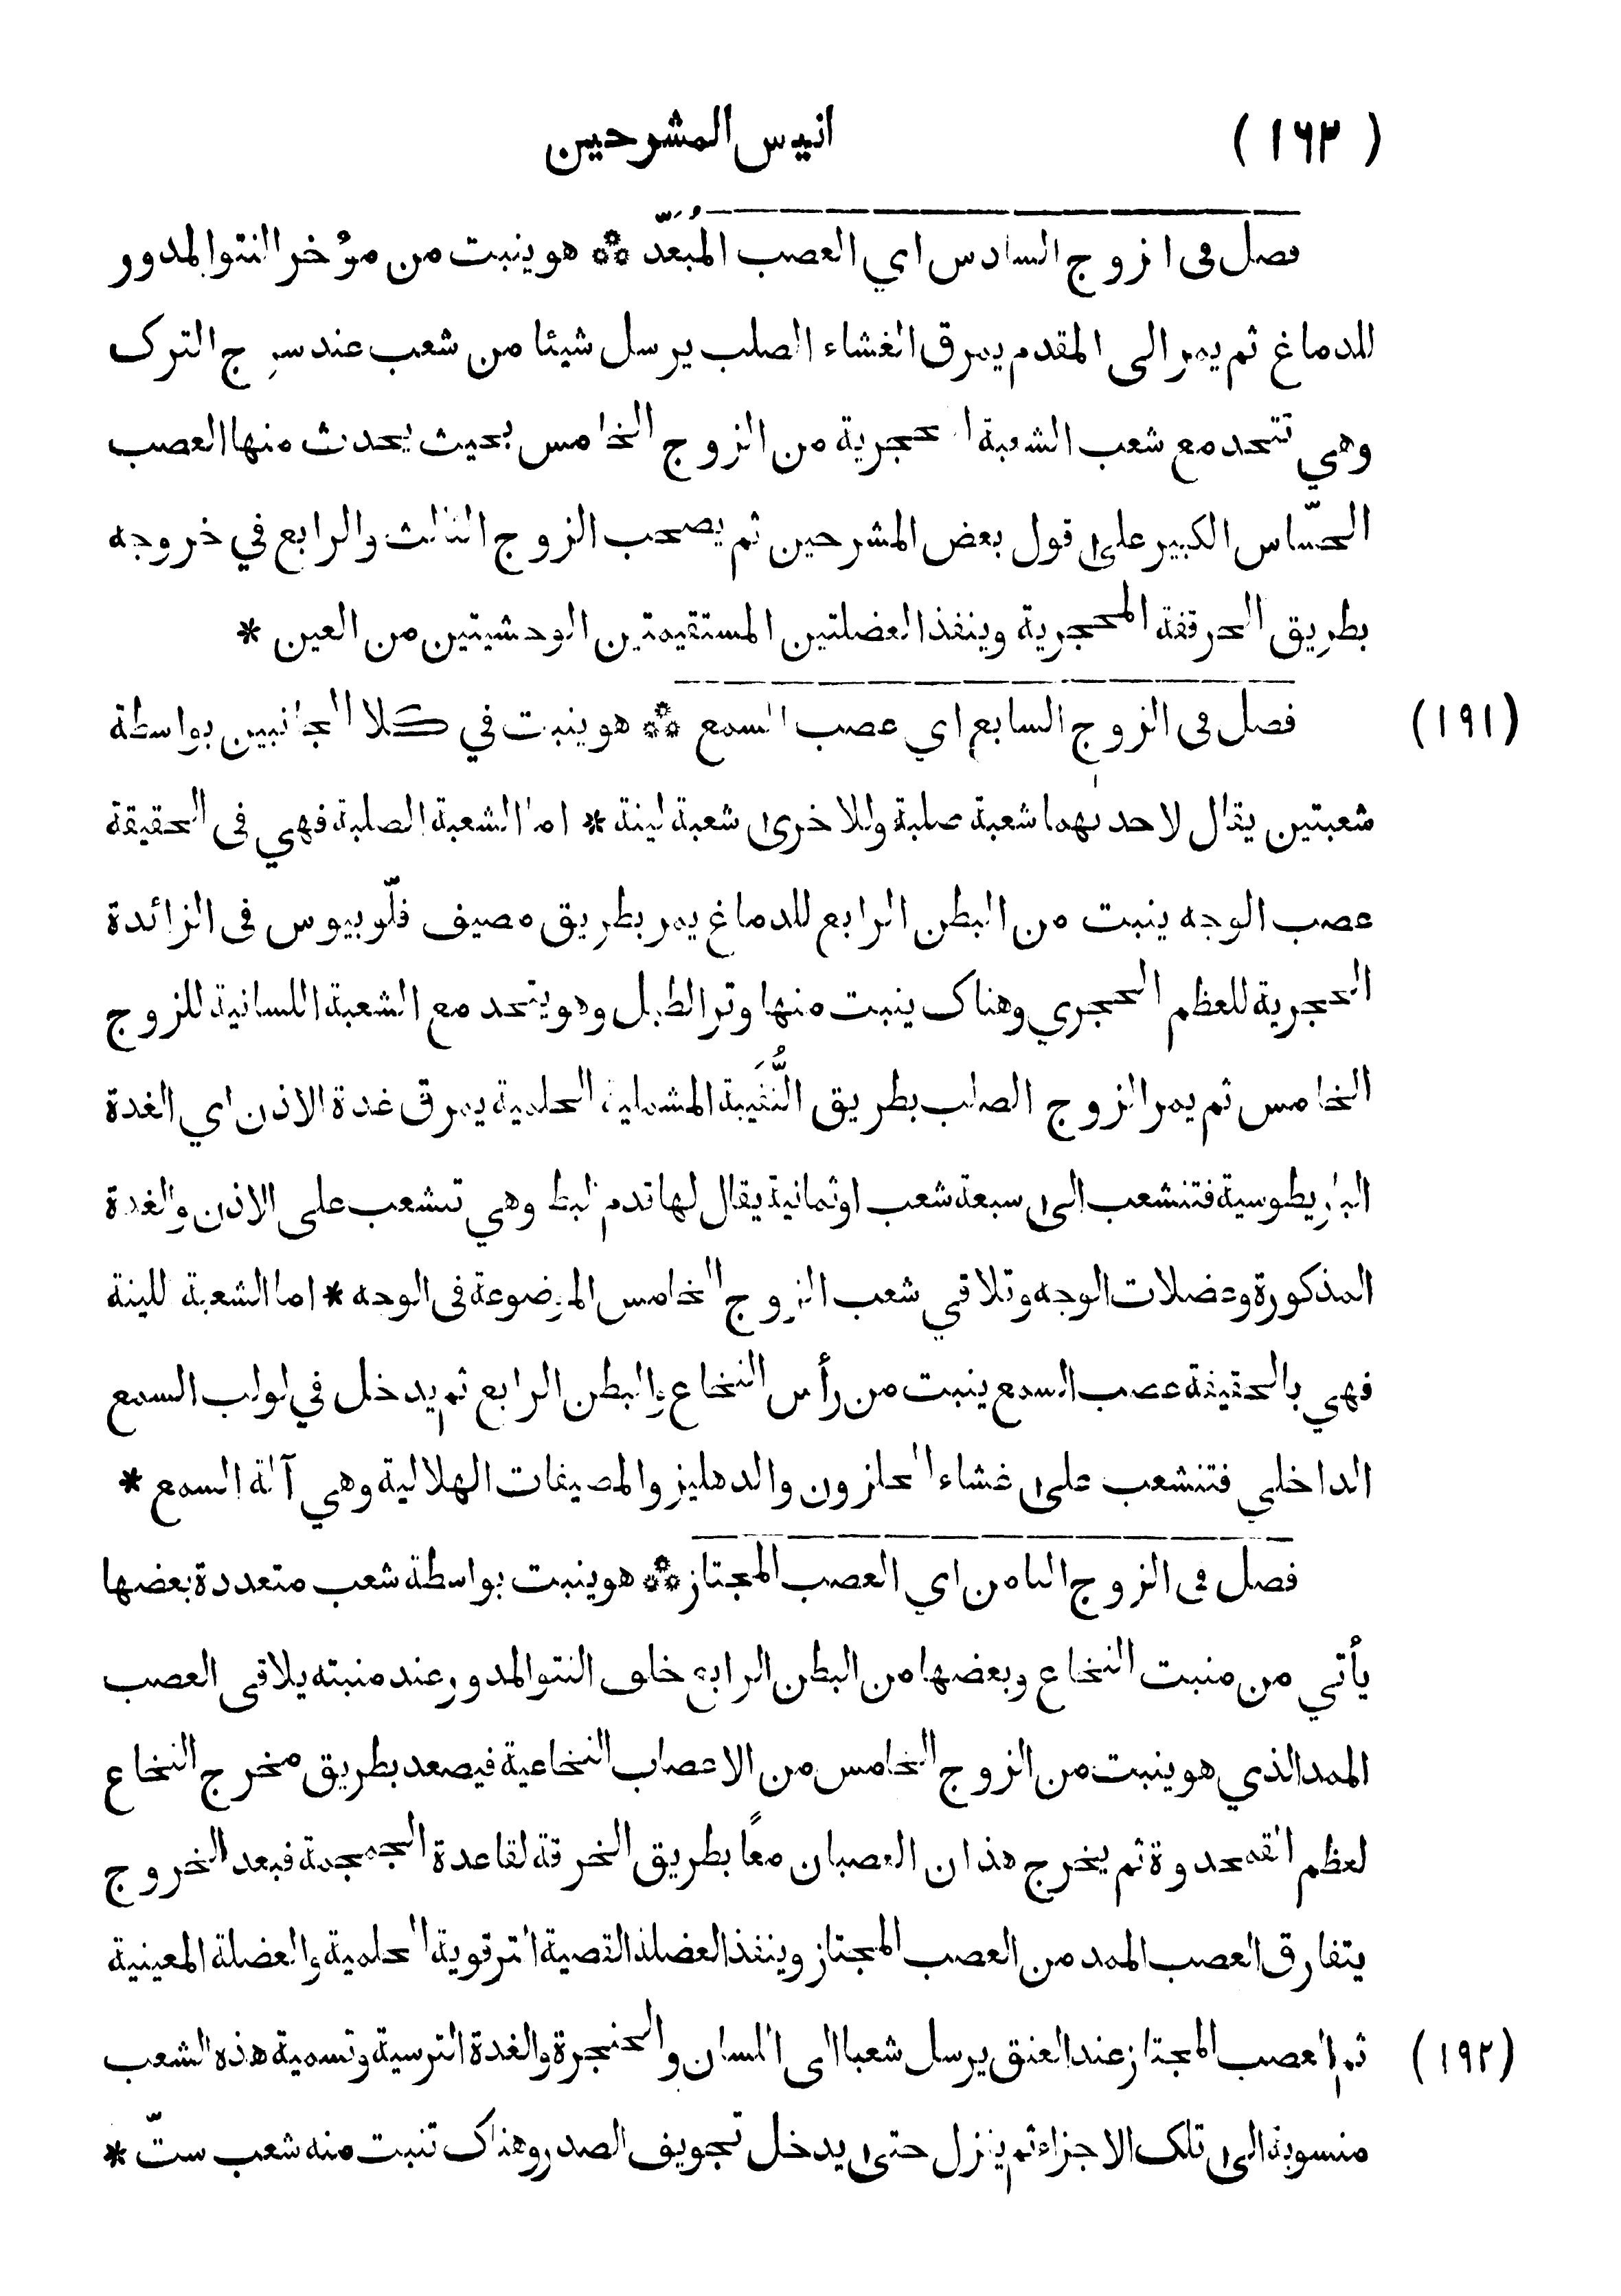 (١٦٣) انيس المشرحين
فصل فى الزوج السادس اي العصب المُبَعِّد ⁂ هو ينبت من مؤخر النتو المدور
للدماغ ثم يمر الى المقدم يمرق الغشاء الصلب يرسل شيئا من شعب عند سرج الترك
وهي تتحد مع شعب الشعبة المحجرية من الزوج الخامس بحيث يحدث منها العصب
الحسّاس الكبير على قول بعض المشرحين ثم يصحب الزوج الثالث والرابع في خروجه
بطريق الحرقفة المحجرية وينفذ العضلتين المستقيمتين الوحشيتين من العين *
(١٩١) فصل فى الزوج السابع اي عصب السمع ⁂ هو ينبت في كلا الجانبين بواسطة
شعبتين يقال لاحدىهما شعبة صلبة وللاخرى شعبة لينة * اما الشعبة الصلبة فهي فى الحقيقة
عصب الوجه ينبت من البطن الرابع للدماغ يمر بطريق مصيف فلّوبيوس فى الزائدة
الحجرية للعظم الحجري وهناك ينبت منها وتر الطبل وهو يتحد مع الشعبة اللسانية للزوج
الخامس ثم يمر الزوج الصلب بطريق الثُّقَيبة المشملية الحلمية يمرق غدة الاذن اي الغدة
الباريطوسية فتنشعب الى سبعة شعب او ثمانية يقال لها قدم البط وهي تنشعب على الاذن والغدة
المذكورة وعضلات الوجه وتلاقي شعب الزوج الخامس الموضوعة فى الوجه * اما الشعبة للينة
فهي بالحقيقة عصب السمع ينبت من رأس النخاع والبطن الرابع ثم يدخل في لولب السمع
الداخلي فتنشعب على غشاء الحلزون والدهليز والمصيفات الهلالية وهي آلة السمع *
فصل فى الزوج الثامن اي العصب المجتاز ⁂ هو ينبت بواسطة شعب متعددة بعضها
يأتي من منبت النخاع وبعضها من البطن الرابع خلف النتو المدور عند منبته يلاقى العصب
الممد الذي هو ينبت من الزوج الخامس من الاعصاب النخاعية فيصعد بطريق مخرج النخاع
لعظم القمحدوة ثم يخرج هذان العصبان معًا بطريق الخرقة لقاعدة الجمجمة فبعد الخروج
يتفارق العصب الممد من العصب المجتاز وينفذ العضلة القصية الترقوية الحلمية والعضلة المعينية
(١٩٢) ثم العصب المجتاز عند العنق يرسل شعبا الى اللسان والحنجرة والغدة الترسية وتسمية هذه الشعب
منسوبة الى تلك الاجزاء ثم ينزل حتى يدخل تجويف الصدر وهناك تنبت منه شعب ستّ *